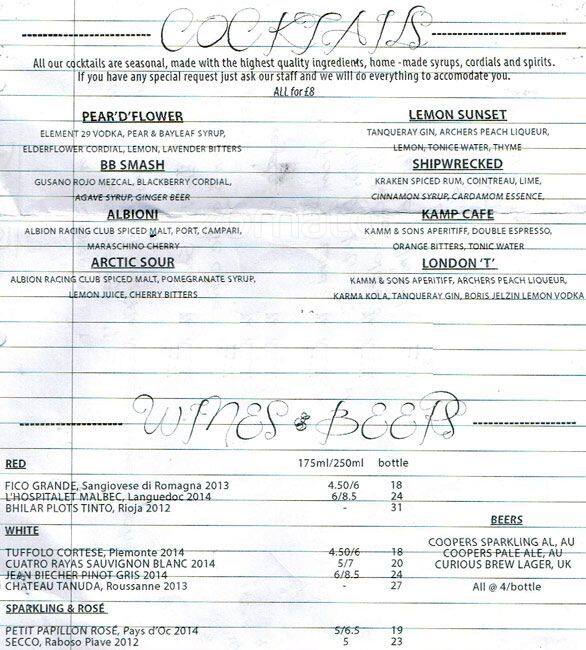 COCKTAILS
All our cocktails are seasonal, made with the highest quality ingredients, home -made syrups, cordials and spirits.
If you have any special request just ask our staff and we will do everything to accomodate you.
ALL for£8
PEAR'D'FLOWER
ELEMENT 29 VODKA, PEAR & BAYLEAF SYRUP,
ELDERFLOWER CORDIAL, LEMON, LAVENDER BITTERS
BB SMASH
GUSANO ROJO MEZCAL, BLACKBERRY CORDIAL,
AGAVE SYRUP, GINGER BEER
ALBIONI
ALBION RACING CLUB SPICED MALT, PORT, CAMPARI,
MARASCHINO CHERRY
ARCTIC SOUR
ALBION RACING CLUB SPICED MALT, POMEGRANATE SYRUP,
LEMON JUICE, CHERRY BITTERS
LEMON SUNSET
TANQUERAY GIN, ARCHERS PEACH LIQUEUR,
LEMON, TONICE WATER, THYME
SHIPWRECKED
KRAKEN SPICED RUM, COINTREAU, LIME,
CINNAMON SYRUP, CARDAMOM ESSENCE,
KAMP CAFE
KAMM & SONS APERITIFF, DOUBLE ESPRESSO,
ORANGE BITTERS, TONIC WATER
LONDON 'T'
KAMM & SONS APERITIFF, ARCHERS PEACH LIQUEUR,
KARMA KOLA, TANQUERAY GIN, BORIS JELZIN LEMON VODKA
WINES & BEERS
RED 175ml/250ml bottle
FICO GRANDE, Sangiovese di Romagna 2013 4.50/6 18
L'HOSPITALET MALBEC, Languedoc 2014 6/8.5 24
BHILAR PLOTS TINTO, Rioja 2012 - 31
WHITE
TUFFOLO CORTESE, Piemonte 2014 4.50/6 18
CUATRO RAYAS SAUVIGNON BLANC 2014 5/7 20
JEAN BIECHER PINOT GRIS 2014 6/8.5 24
CHATEAU TANUDA, Roussanne 2013 - 27
SPARKLING & ROSÉ
PETIT PAPILLON ROSÉ, Pays d'Oc 2014 5/6.5 19
SECCO, Raboso Piave 2012 5 23
BEERS
COOPERS SPARKLING AL, AU
COOPERS PALE ALE, AU
CURIOUS BREW LAGER, UK
All @ 4/bottle